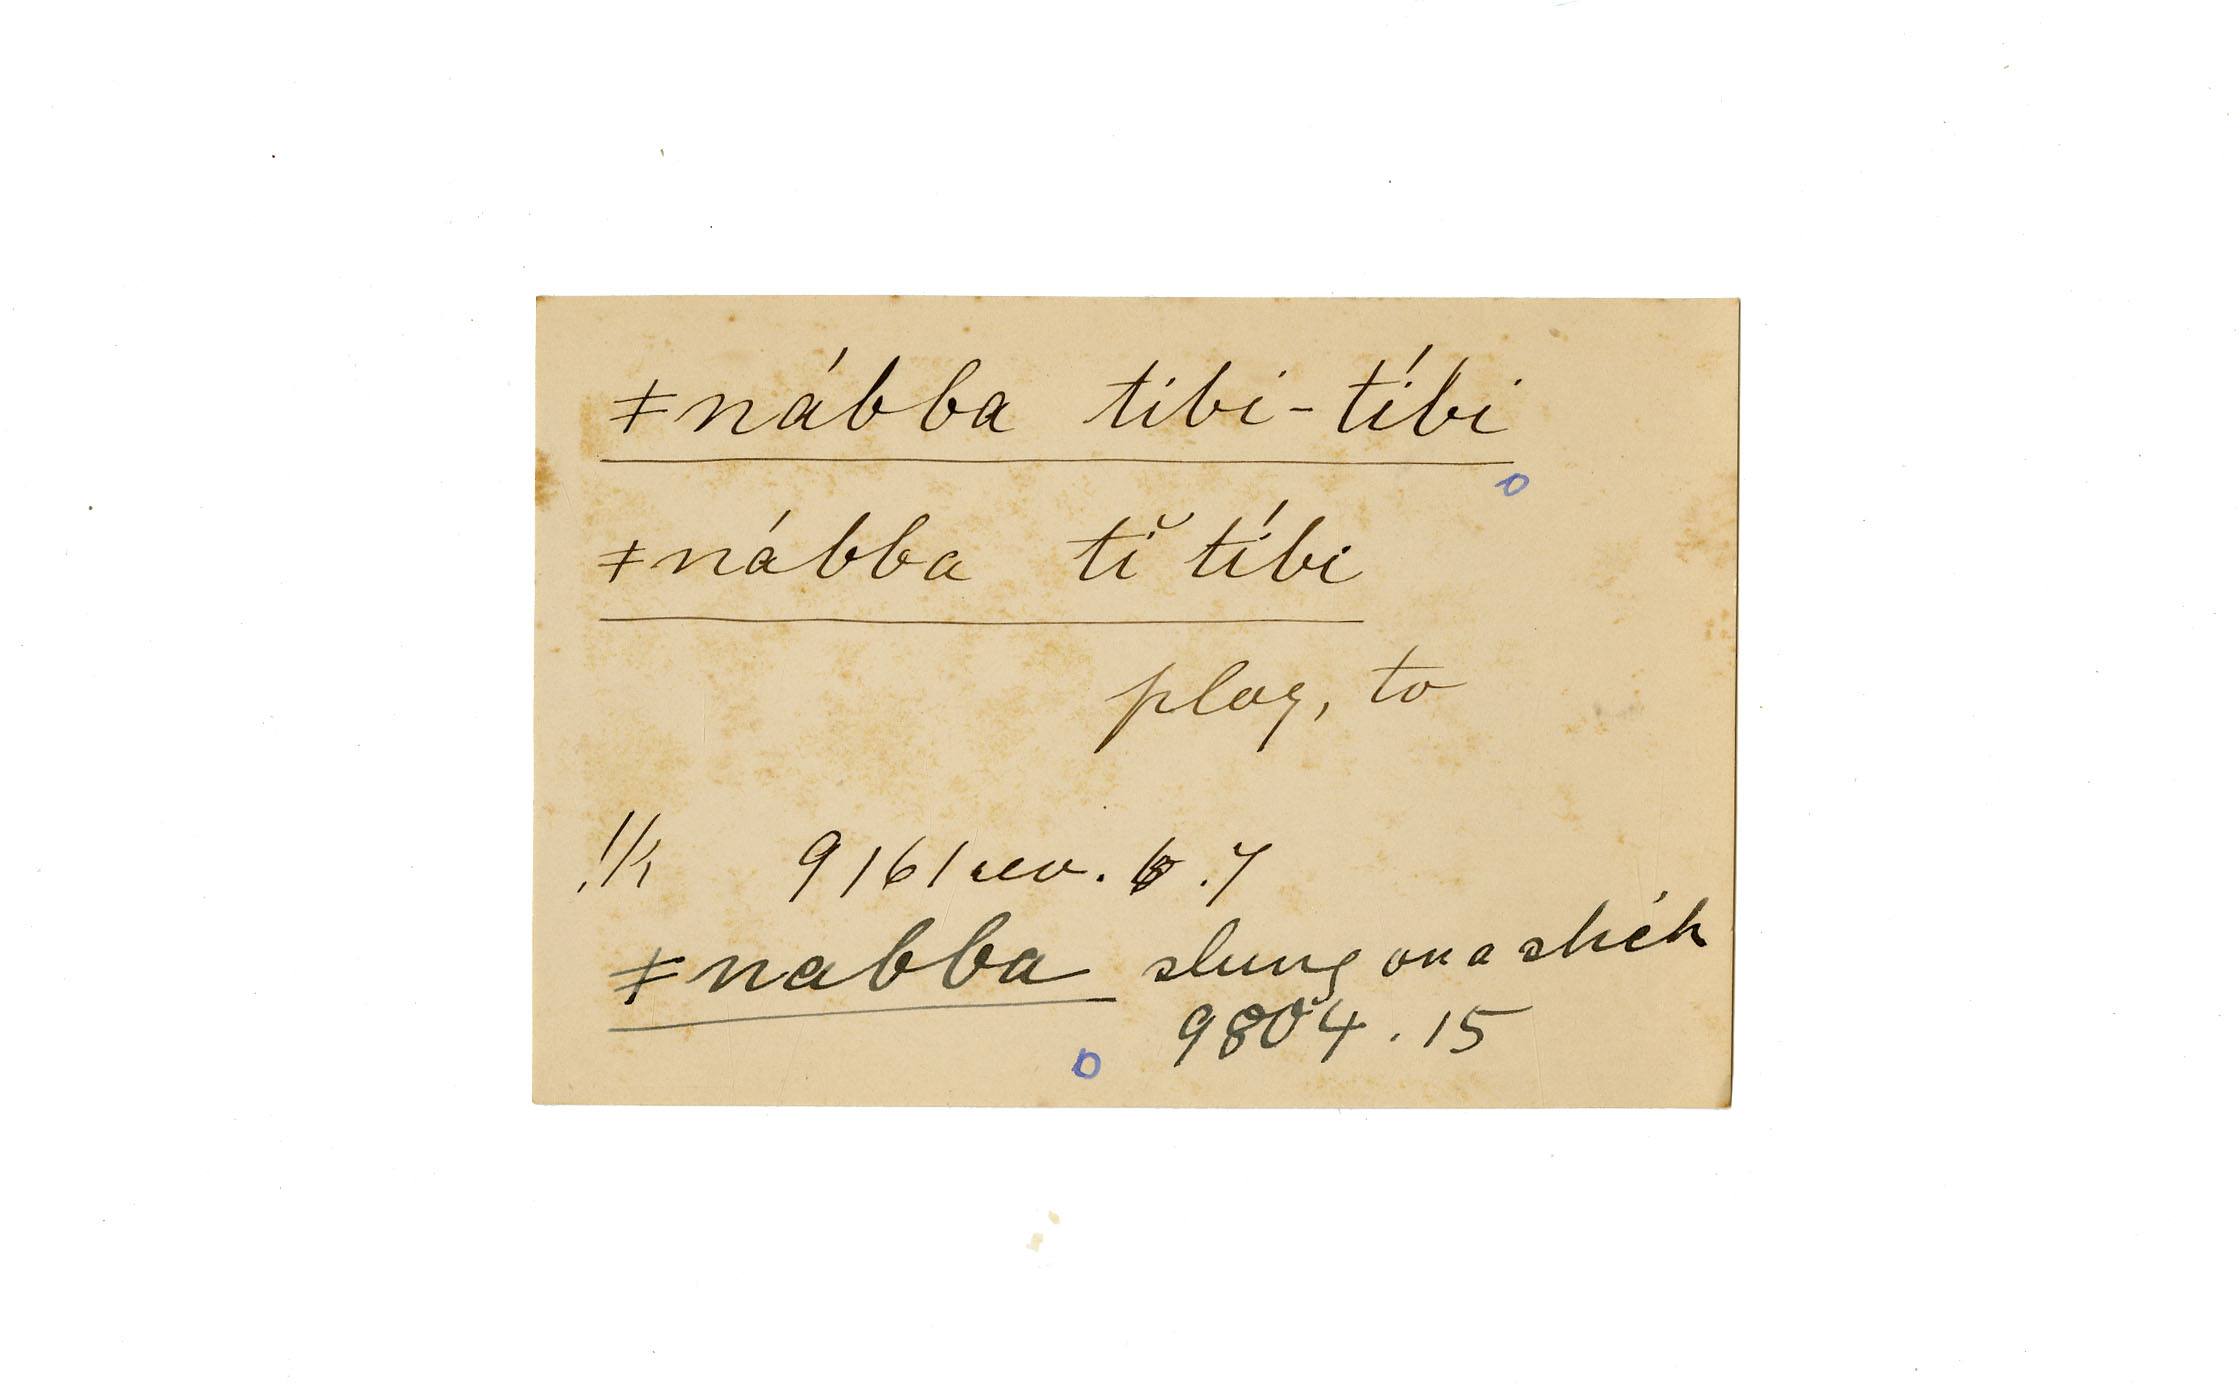 ǂnábba tibi-tíbi
o
ǂnábba tĭ tíbi
play, to
!k 9161 rev. .7
ǂnabba slung on a stick
9804.15
o